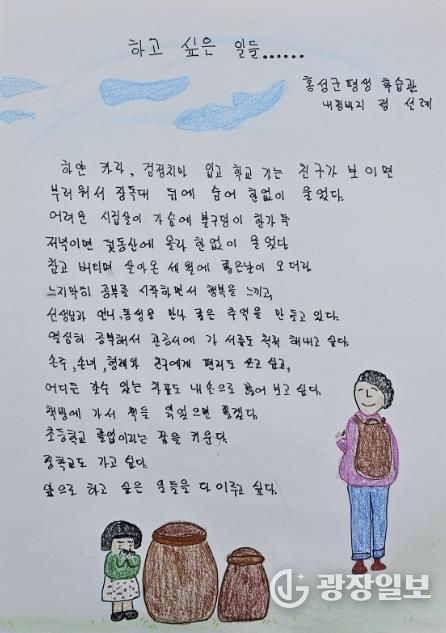 하고 싶은 일들......
홍성군 평생 학습관
내림바지 정 선례
하얀 카라, 검정치마 입고 학교 가는 친구가 보이면
부러워서 장독대 뒤에 숨어 한없이 울었다.
어려운 시집살이 가슴에 불구덩이 한가득
저녁이면 뒷동산에 올라 한없이 울었다
참고 버티며 살아온 세월에 좋은날이 오더라
느지막히 공부를 시작하면서 행복을 느끼고,
선생님과 언니, 동생을 만나 좋은 추억을 만들고 있다.
열심히 공부해서 관공서에 가 서류도 척척 해내고 싶다.
손주, 손녀, 형제와 친구에게 편지도 쓰고 싶고,
어디든 갈수 있는 차표도 내손으로 끊어 보고 싶다.
책방에 가서 책을 읽었으면 좋겠다.
초등학교 졸업이라는 꿈을 키운다.
중학교도 가고 싶다.
앞으로 하고 싶은 일들을 다 이루고 싶다.
광장일보